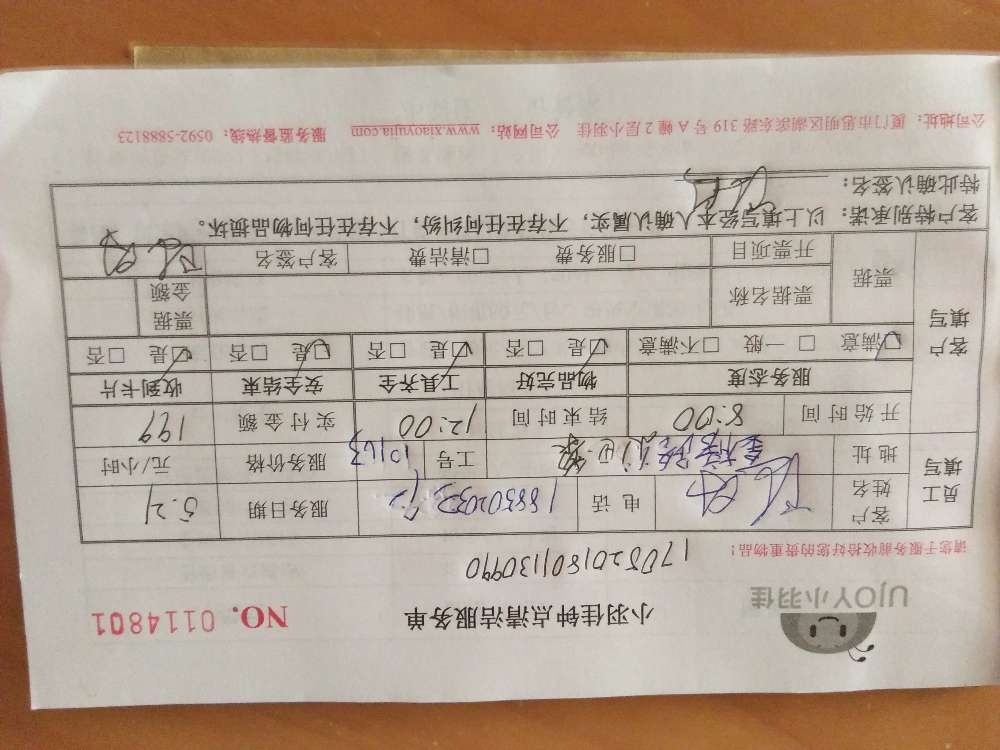 UJOY小羽佳
小羽佳钟点清洁服务单
NO. 0114801
1705201801130990
请您于服务前收拾好您的贵重物品！
员工填写
客户姓名 电话 服务日期 5.21
地址 工号 10163 服务价格 元/小时
开始时间 8:00 结束时间 12:00 实付金额 199
客户填写
服务态度 物品完好 工具齐全 安全结束 收到卡片
□满意 □一般 □不满意 □是 □否 □是 □否 □是 □否 □是 □否
票据 票据名称 票据金额
开票项目 □服务费 □清洁费 客户签名
客户特别承诺：以上填写经本人确认，属实，不存在任何纠纷，不存在任何物品损坏。
特此确认签名：
公司地址：厦门市思明区湖滨东路 319 号 A 幢 2 层小羽佳 公司网站：www.xiaoyujia.com 服务监督热线：0592-5888123